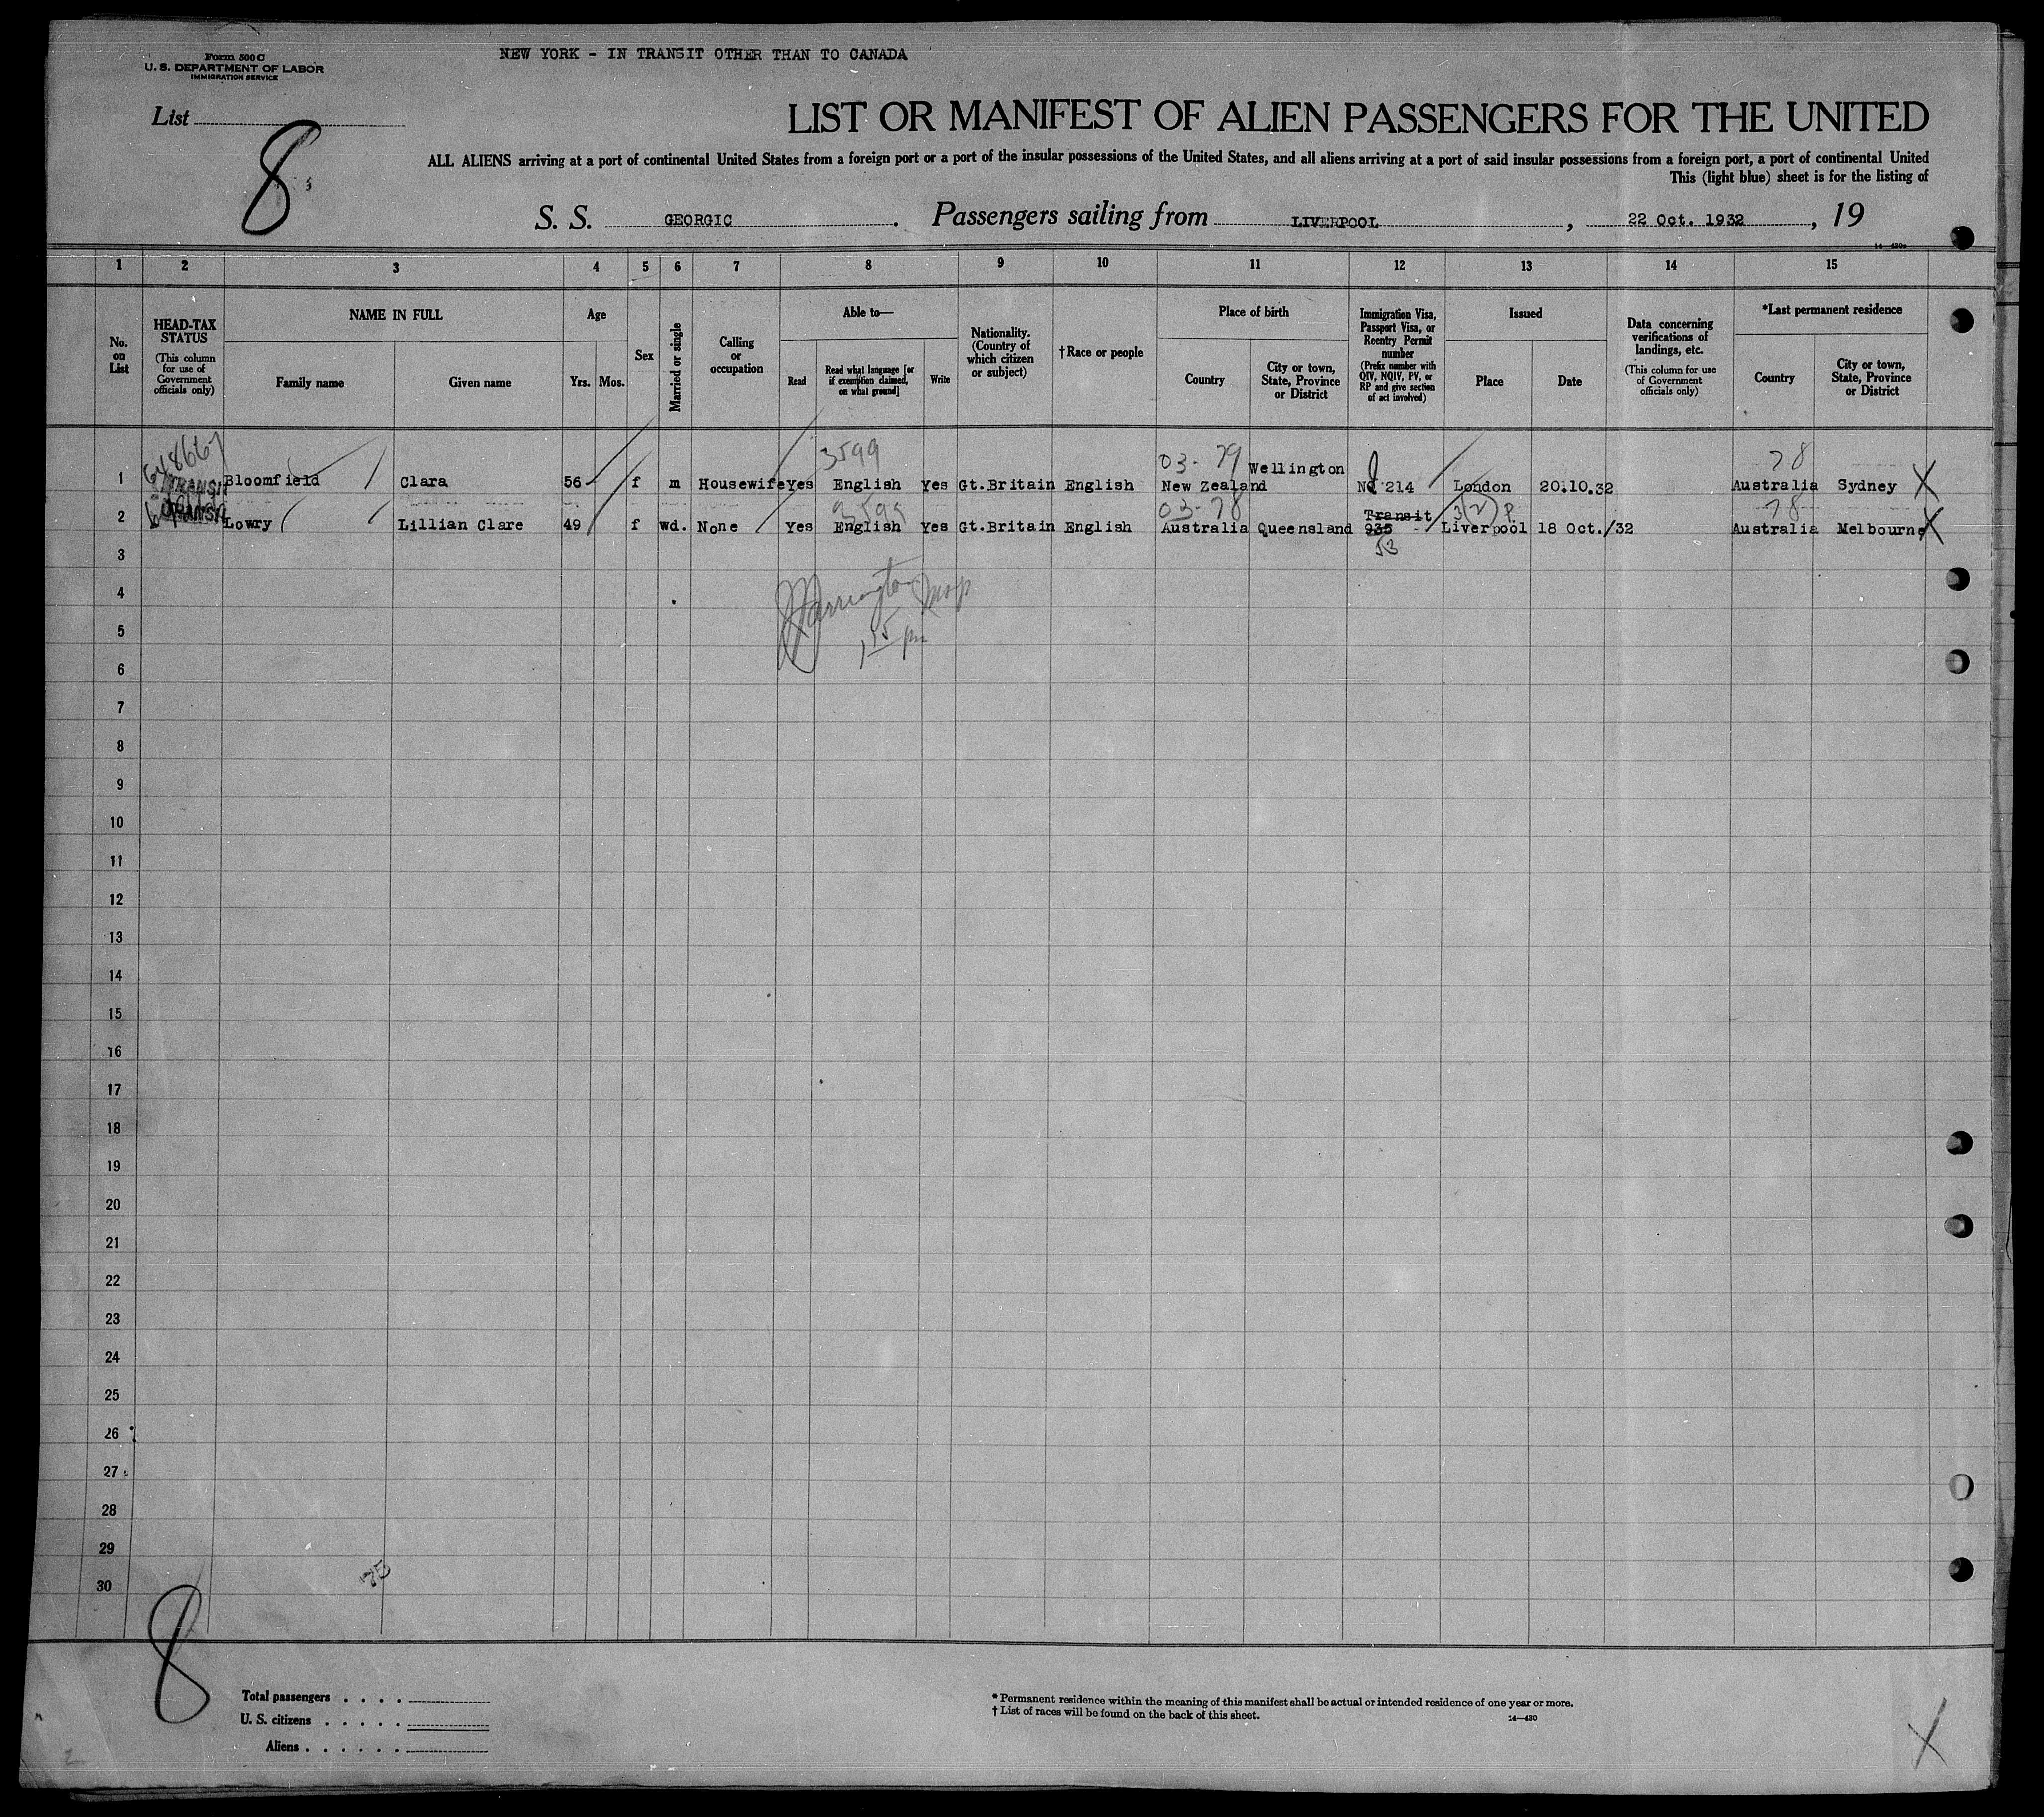 Form 500 C
U. S. DEPARTMENT OF LABOR
IMMIGRATION SERVICE
NEW YORK - IN TRANSIT OTHER THAN TO CANADA
List
8
LIST OR MANIFEST OF ALIEN PASSENGERS FOR THE UNITED
ALL ALIENS arriving at a port of continental United States from a foreign port or a port of the insular possessions of the United States, and all aliens arriving at a port of said insular possessions from a foreign port, a port of continental United
This (light blue) sheet is for the listing of
S. S. GEORGIC . Passengers sailing from LIVERPOOL , 22 Oct. 1932 , 19
1 2 3 4 5 6 7 8 9 10 11 12 13 14 15
No. on List
HEAD-TAX STATUS (This column for use of Government officials only)
NAME IN FULL
Family name
Given name
Age
Yrs. Mos.
Sex
Married or single
Calling or occupation
Able to—
Read
Read what language [or if exemption claimed, on what ground]
Write
Nationality. (Country of which citizen or subject)
†Race or people
Place of birth
Country
City or town, State, Province or District
Immigration Visa, Passport Visa, or Reentry Permit number (Prefix number with QIV, NQIV, PV, or RP and give section of act involved)
Issued
Place
Date
Data concerning verifications of landings, etc. (This column for use of Government officials only)
*Last permanent residence
Country
City or town, State, Province or District
648667 3599 03- 79 78
1 TRANSIT Bloomfield Clara 56 f m Housewife Yes English Yes Gt.Britain English New Zealand Wellington No 214 London 20.10.32 Australia Sydney X
3599 03-78 3(2) P. 78
2 TRANSIT Lowry Lillian Clare 49 f wd. None Yes English Yes Gt.Britain English Australia Queensland Transit 935 Liverpool 18 Oct./32 Australia Melbourne X
53
3
4
Harrington Insp
5
1 15 pm
6
7
8
9
10
11
12
13
14
15
16
17
18
19
20
21
22
23
24
25
26
27
28
29
30
75
8
Total passengers . . . .
U. S. citizens . . . . .
Aliens . . . . . .
* Permanent residence within the meaning of this manifest shall be actual or intended residence of one year or more.
† List of races will be found on the back of this sheet.
14—430
X